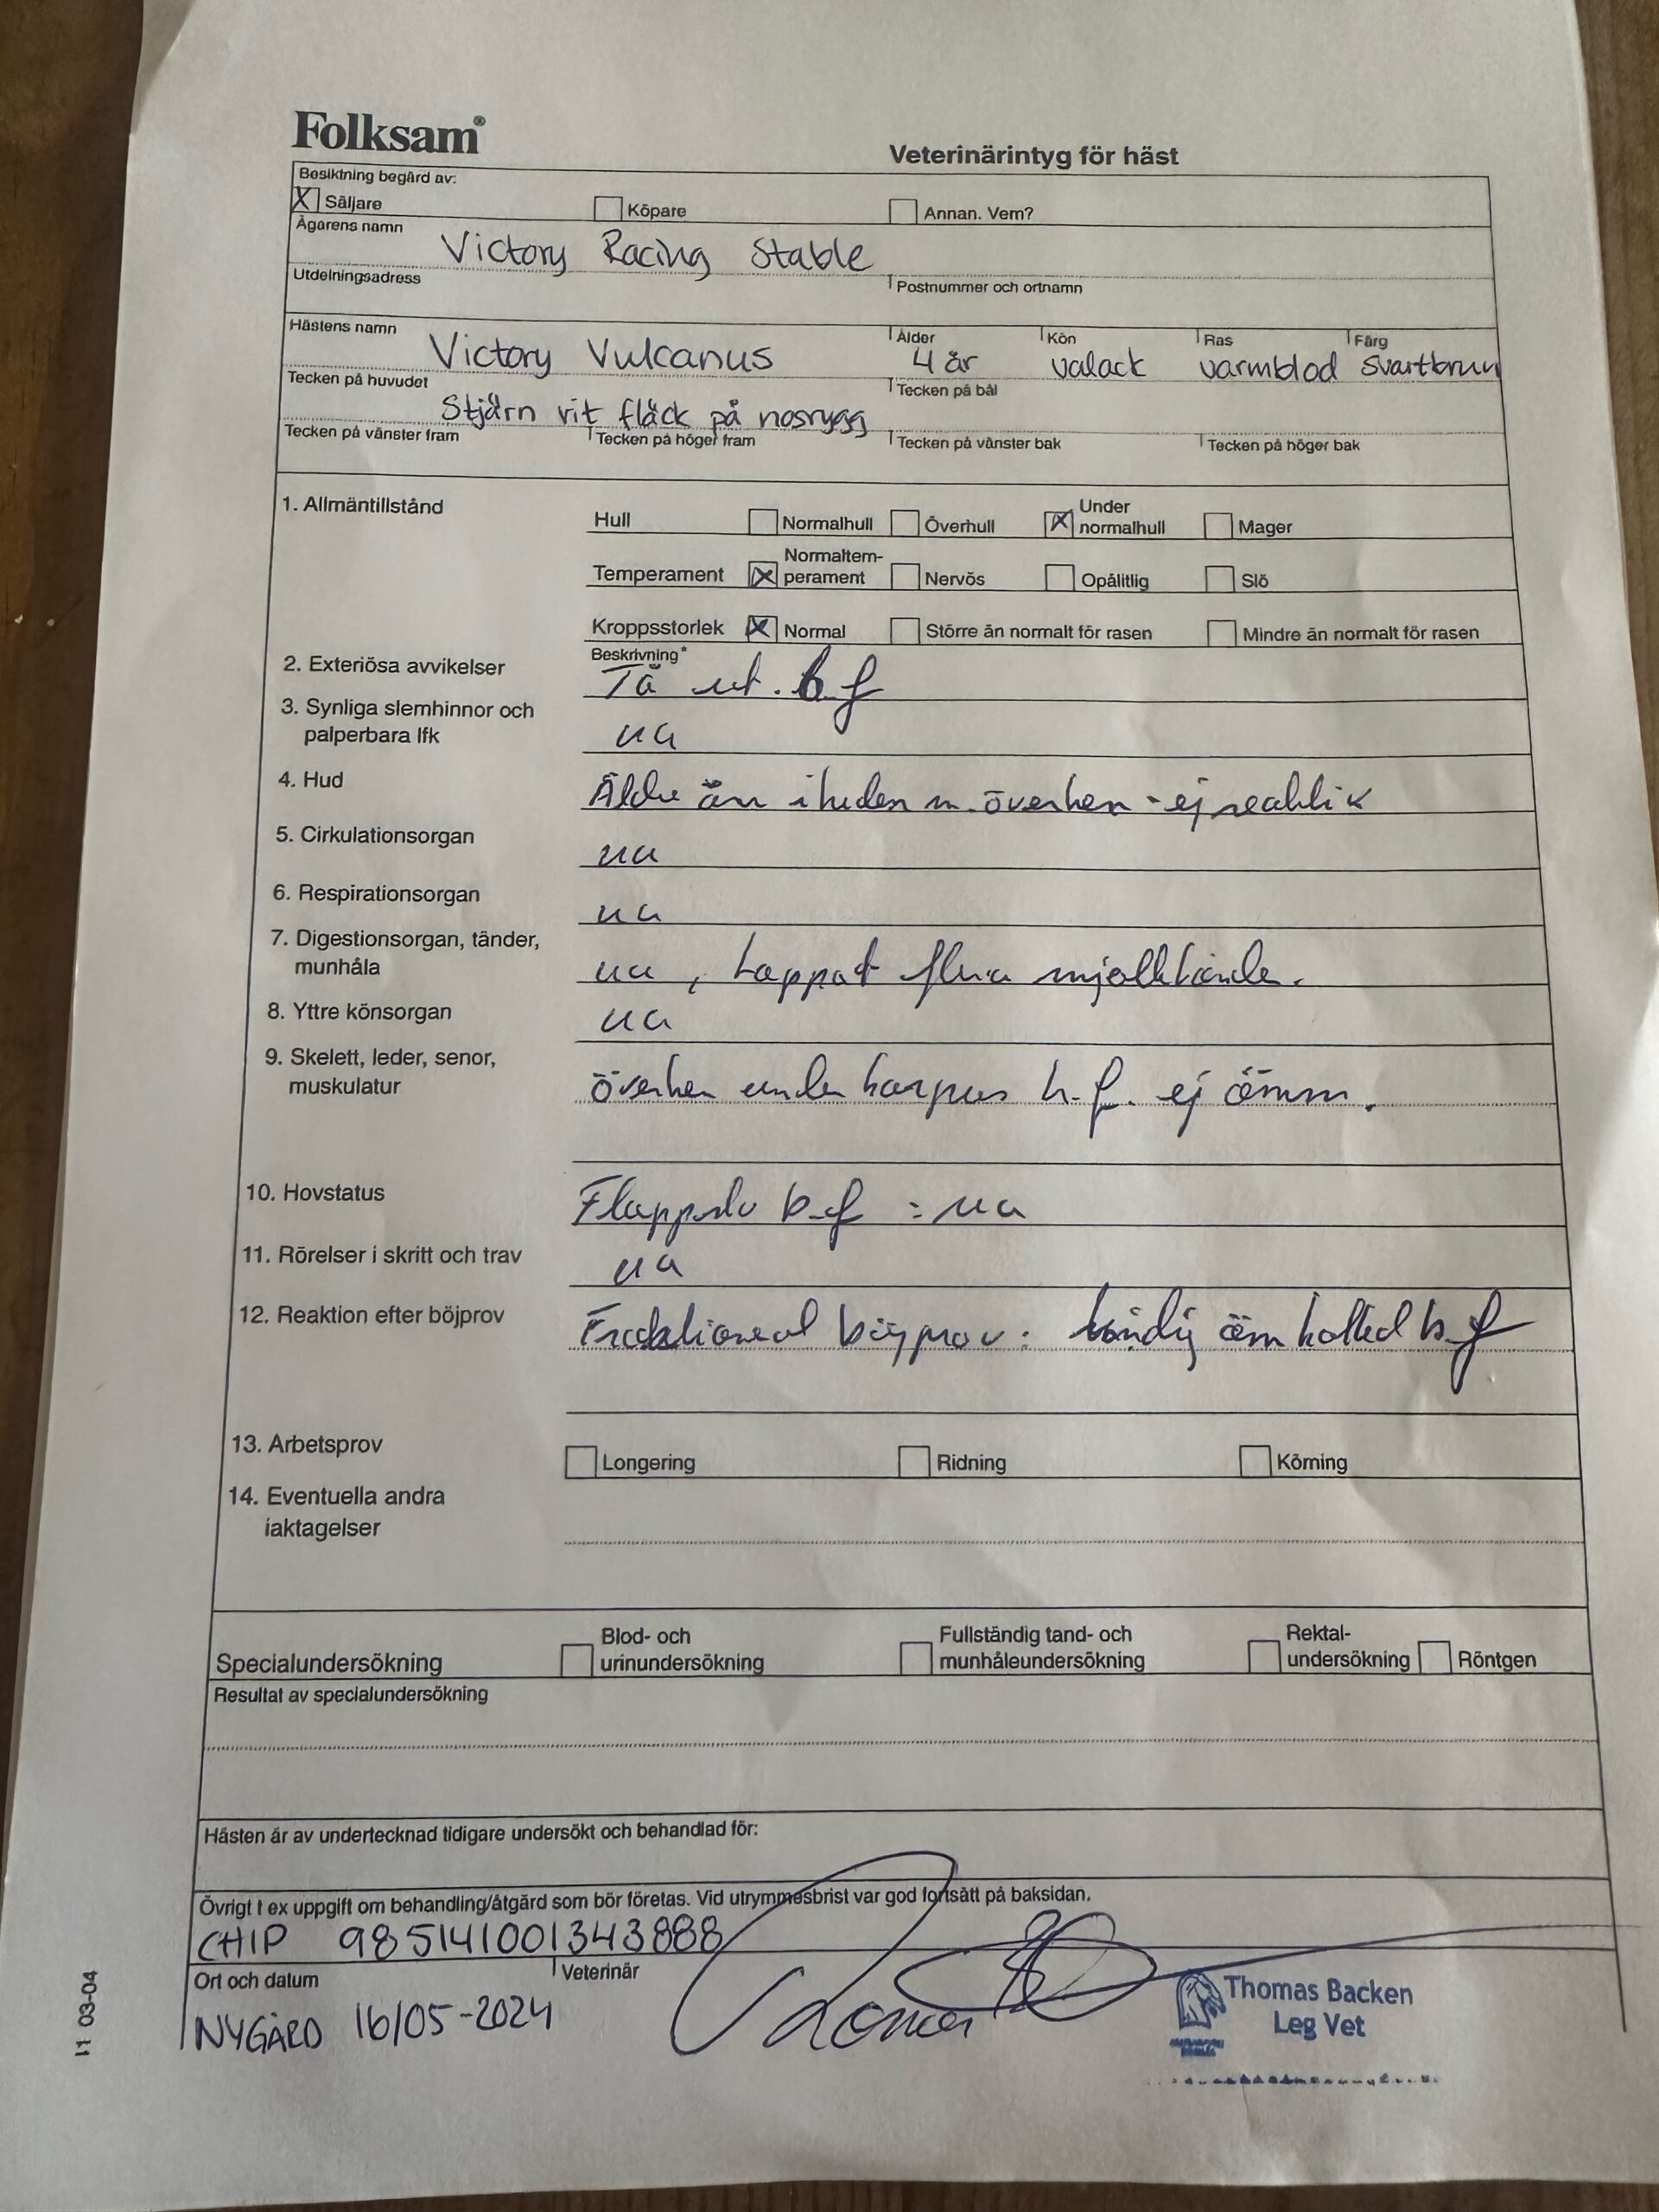 Folksam®
Veterinärintyg för häst
Besiktning begärd av:
X Säljare Köpare Annan. Vem?
Ägarens namn Victory Racing Stable
Utdelningsadress Postnummer och ortnamn
Hästens namn Victory Vulcanus Ålder 4 år Kön valack Ras varmblod Färg svartbrun
Tecken på huvudet Stjärn vit fläck på nosrygg Tecken på bål
Tecken på vänster fram Tecken på höger fram Tecken på vänster bak Tecken på höger bak
1. Allmäntillstånd
Hull Normalhull Överhull X Under normalhull Mager
Temperament X Normaltem-perament Nervös Opålitlig Slö
Kroppsstorlek X Normal Större än normalt för rasen Mindre än normalt för rasen
Beskrivning*
2. Exteriösa avvikelser Tå ut. b.f
3. Synliga slemhinnor och
palperbara lfk ua
4. Hud Äldre ärr i huden m. överben - ej
5. Cirkulationsorgan ua
6. Respirationsorgan ua
7. Digestionsorgan, tänder,
munhåla ua, tappat flera mjölktänder.
8. Yttre könsorgan ua
9. Skelett, leder, senor,
muskulatur överben under karpus h.f. ej ömm.
10. Hovstatus b.f = ua
11. Rörelser i skritt och trav ua
12. Reaktion efter böjprov böjprov: öm kotled b.f
13. Arbetsprov Longering Ridning Körning
14. Eventuella andra
iaktagelser
Specialundersökning Blod- och urinundersökning Fullständig tand- och munhåleundersökning Rektal-undersökning Röntgen
Resultat av specialundersökning
Hästen är av undertecknad tidigare undersökt och behandlad för:
Övrigt t ex uppgift om behandling/åtgärd som bör företas. Vid utrymmesbrist var god fortsätt på baksidan.
CHIP 985141001343888
Ort och datum Veterinär
NYGÅRD 16/05-2024
Thomas Backen
Leg Vet
03-04